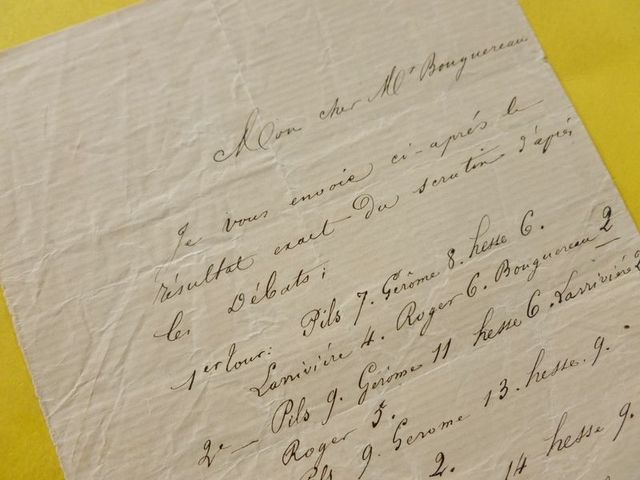 Mon cher Mr Bouguereau
Je vous envoie ci-après le
résultat exact du scrutin d'après
les Débats:
1er tour: Pils 7. Gérôme 8. hesse 6.
Larrivière 4. Roger 6. Bouguereau 2
2e — Pils 9. Gérôme 11 hesse 6. Larrivière 2
Roger 5.
Pils 9. Gerome 13. hesse. 9.
2. 14 hesse 9.